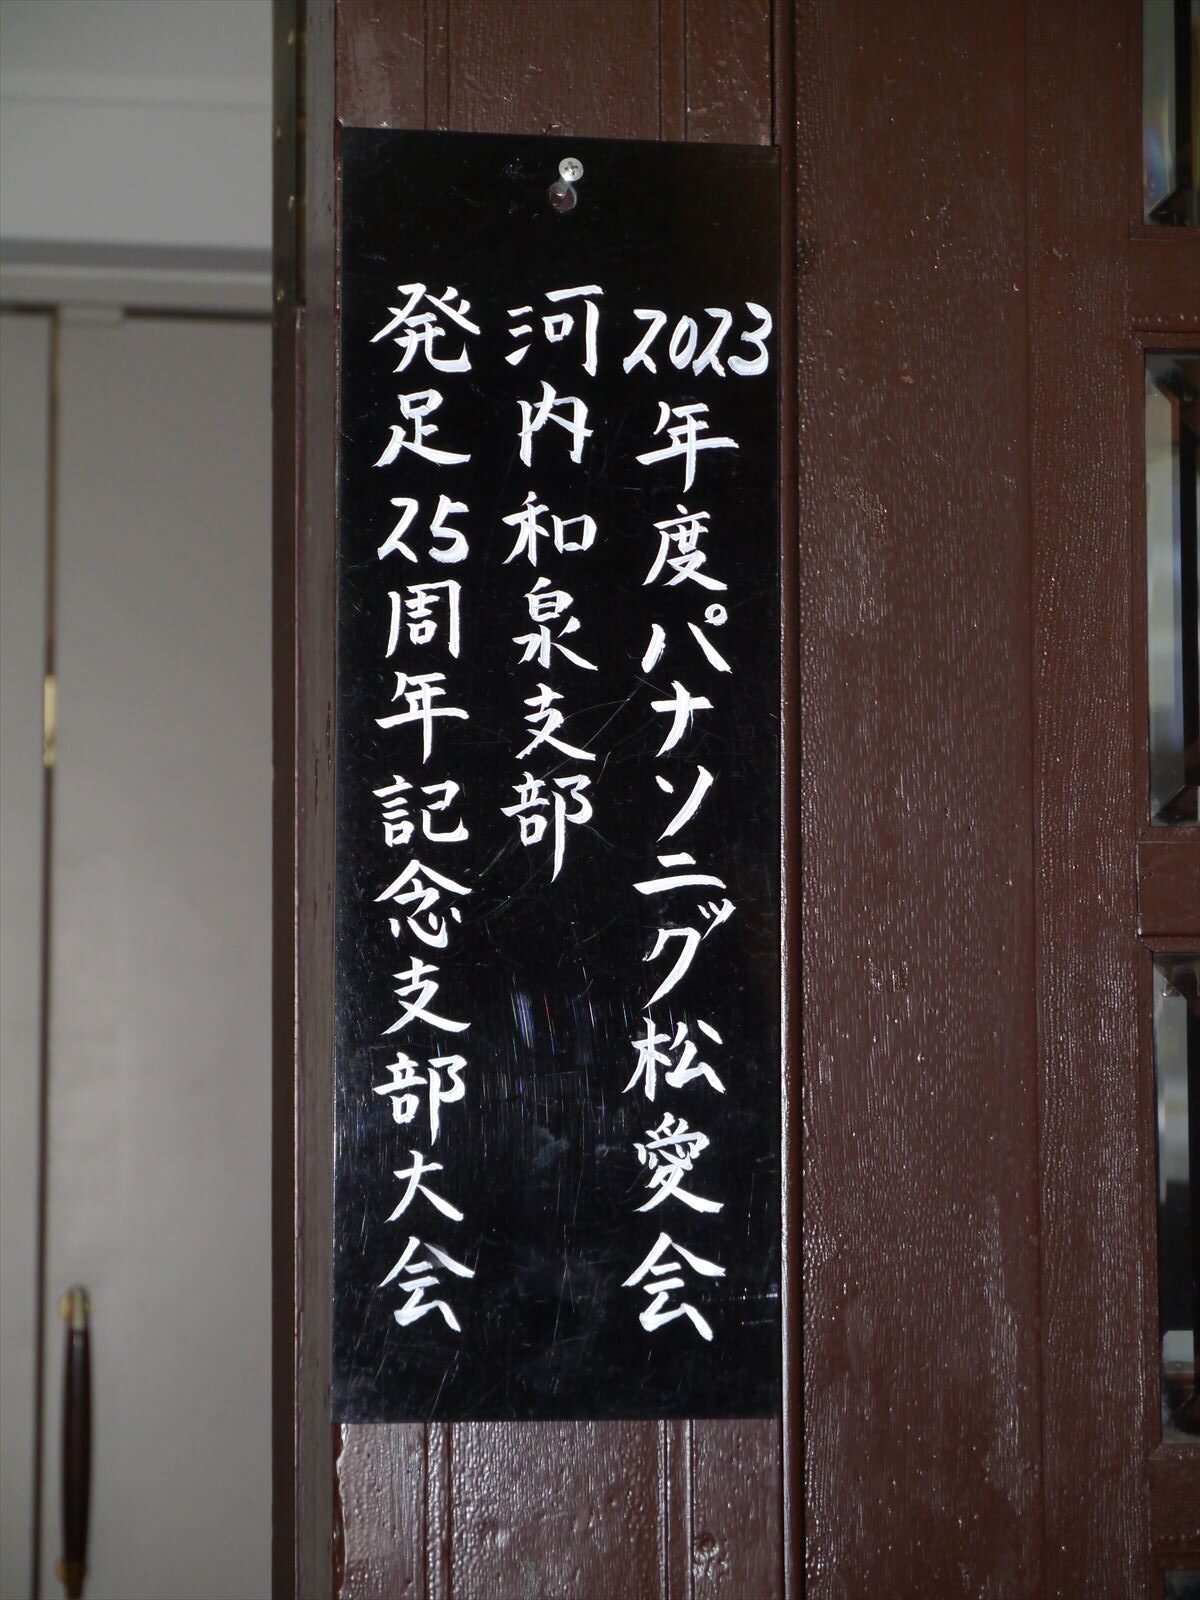 2023年度パナソニック松愛会
河内和泉支部
発足25周年記念支部大会